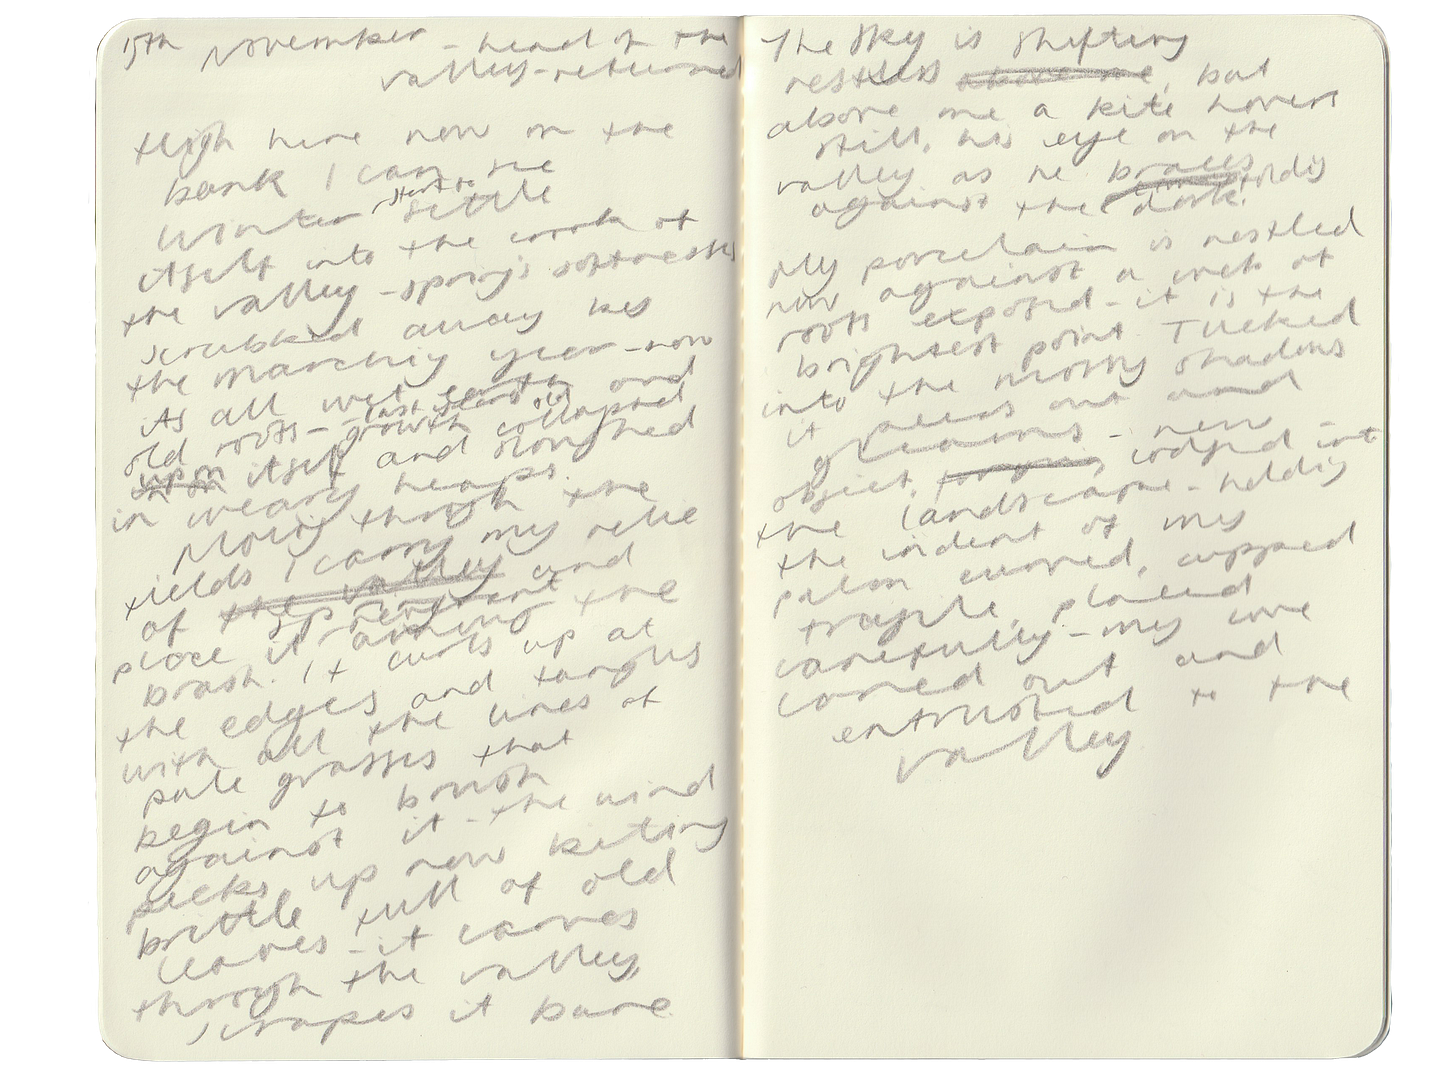 15th November - head of the
valley - returned
High here now on the
bank I can see
winter start to settle
itself into the crook of
the valley - spring's softnesses
scrubbed away by
the marching year - now
its all wet earth and
old roots - last years old
growth collapsed
upon in on itself and sloughed
in weary heaps.
Moving through the
fields I carry my relic
of the valley
spring and
place it among the
brash. It curls up at
the edges and tangles
with all the lines of
pale grasses that
begin to brush
against it - the wind
picks up now biting
brittle full of old
leaves - it carves
through the valley,
scrapes it bare
The sky is shifting
restless above me, but
above me a kite hovers
still, his eye on the
valley as he braces
against the dark.
My porcelain is nestled
now against a web of
roots exposed - it is the
brightest point. Tucked
into the mossy shadows
it peers out and
gleams - new
object, lodged into
the landscape - holding
the indent of my
palm curved, cupped
fragile, placed
carefully - my care
carried out and
entrusted to the
valley